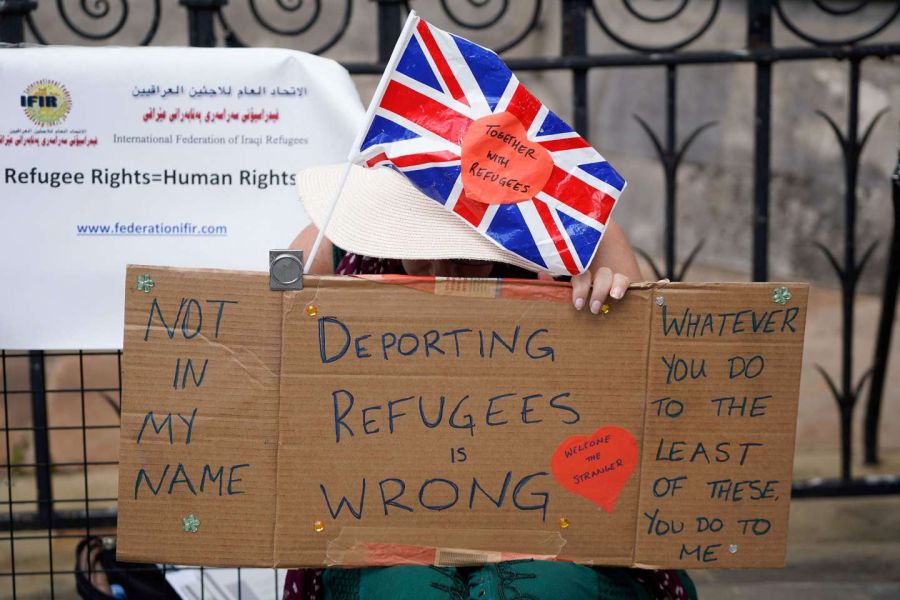 IFIR
الاتحاد العام للاجئين العراقيين
فیدراسیۆنی سەراسەری پەنابەرانی عێراقی
International Federation of Iraqi Refugees
Refugee Rights=Human Rights
www.federationifir.com
TOGETHER
WITH
REFUGEES
NOT
IN
MY
NAME
DEPORTING
REFUGEES
IS
WRONG
WELCOME
THE
STRANGER
WHATEVER
YOU DO
TO THE
LEAST
OF THESE,
YOU DO TO
ME